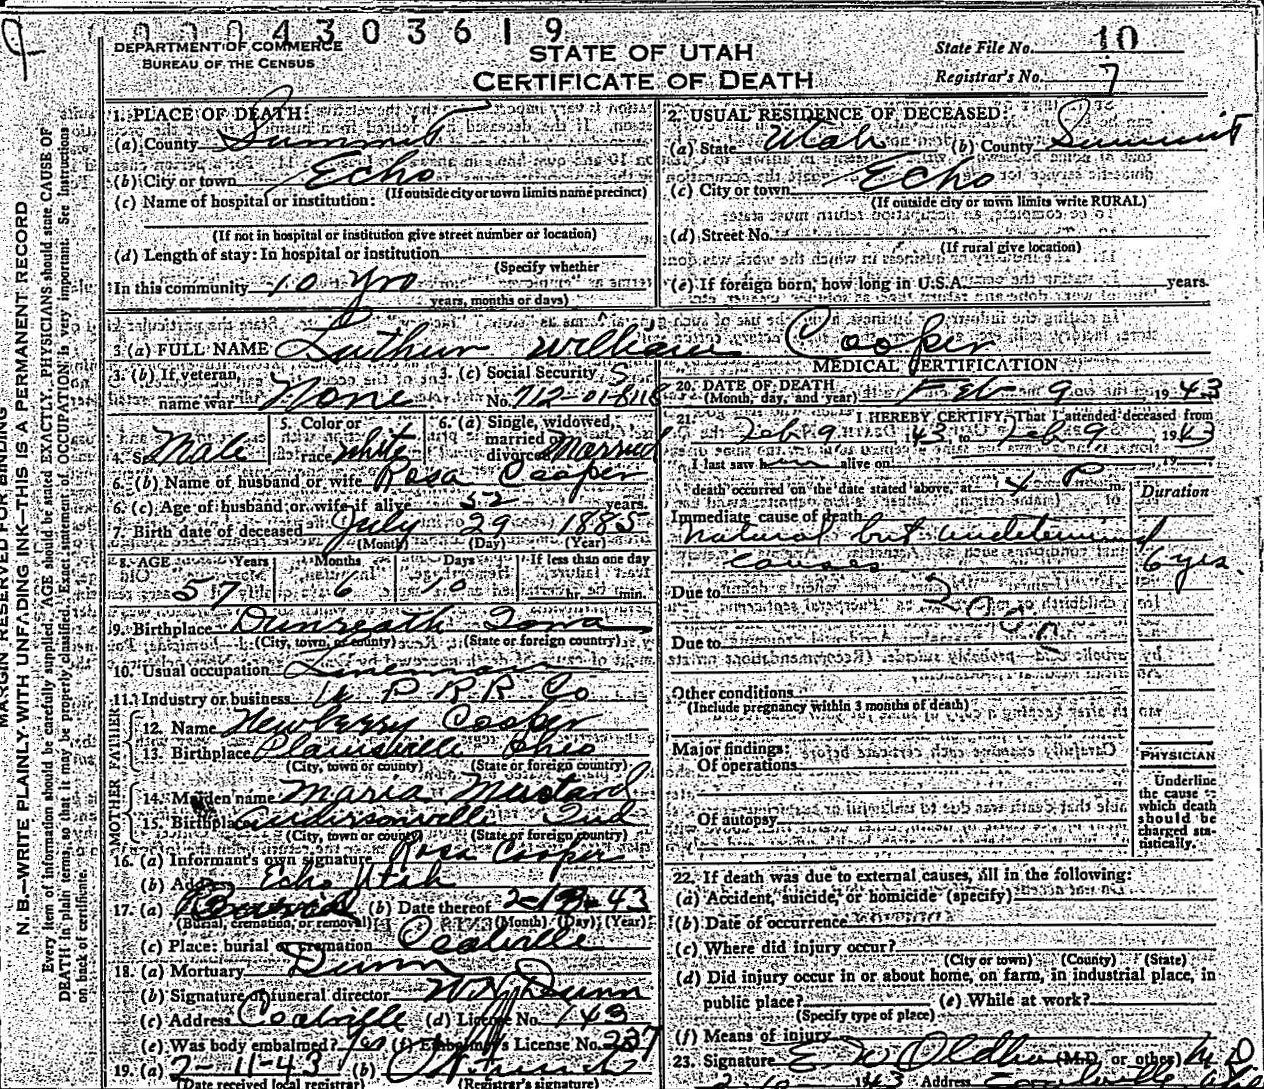 0004303619
DEPARTMENT OF COMMERCE
BUREAU OF THE CENSUS
STATE OF UTAH
CERTIFICATE OF DEATH
State File No. 10
Registrar's No. 7
MARGIN RESERVED FOR BINDING
N. B.—WRITE PLAINLY, WITH UNFADING INK—THIS IS A PERMANENT RECORD
Every item of information should be carefully supplied. AGE should be stated EXACTLY. PHYSICIANS should state CAUSE OF
DEATH in plain terms, so that it may be properly classified. Exact statement of OCCUPATION is very important. See instructions
on back of certificate.
1. PLACE OF DEATH:
(a) County Summit
(b) City or town Echo
(If outside city or town limits name precinct)
(c) Name of hospital or institution:
(If not in hospital or institution give street number or location)
(d) Length of stay: In hospital or institution
(Specify whether
In this community 10 yrs
years, months or days)
2. USUAL RESIDENCE OF DECEASED:
(a) State Utah (b) County Summit
(c) City or town Echo
(If outside city or town limits write RURAL)
(d) Street No.
(If rural give location)
(e) If foreign born, how long in U.S.A. years.
3 (a) FULL NAME Luthur William Cooper
3. (b) If veteran, name war None
3. (c) Social Security No. 712-01-8118
4. Sex Male
5. Color or race white
6. (a) Single, widowed, married or divorced Married
6. (b) Name of husband or wife Rosa Cooper
6. (c) Age of husband or wife if alive 52 years.
7. Birth date of deceased July 29 1885
(Month) (Day) (Year)
8. AGE Years Months Days If less than one day
57 6 10 hr. min.
9. Birthplace Dunreath Iowa
(City, town, or county) (State or foreign country)
10. Usual occupation Lineman
11. Industry or business U P R R Co
FATHER
12. Name Newberry Cooper
13. Birthplace Plainsville Ohio
(City, town or county) (State or foreign country)
MOTHER
14. Maiden name Maria Mustard
15. Birthplace Andersonville Ind
(City, town or county) (State or foreign country)
16. (a) Informant's own signature Rosa Cooper
(b) Address Echo Utah
17. (a) Burial (b) Date thereof 2-13-43
(Burial, cremation, or removal) (Month) (Day) (Year)
(c) Place: burial or cremation Coalville
18. (a) Mortuary Dunn
(b) Signature of funeral director W N Dunn
(c) Address Coalville (d) License No. 143
(e) Was body embalmed? (f) Embalmer's License No. 237
19. (a) 2-11-43 (b)
(Date received local registrar) (Registrar's signature)
MEDICAL CERTIFICATION
20. DATE OF DEATH
(Month, day, and year) Feb 9 1943
21. I HEREBY CERTIFY, That I attended deceased from
Feb 9 1943 to Feb 9 1943
I last saw him alive on 19
death occurred on the date stated above, at 4 P m.
Duration
Immediate cause of death
natural but undetermined
causes 6 yrs.
Due to
Due to
Other conditions
(Include pregnancy within 3 months of death)
Major findings:
Of operations
Of autopsy
PHYSICIAN
Underline
the cause
which death
should be
charged sta-
tistically.
22. If death was due to external causes, fill in the following:
(a) Accident, suicide, or homicide (specify)
(b) Date of occurrence
(c) Where did injury occur?
(City or town) (County) (State)
(d) Did injury occur in or about home, on farm, in industrial place, in
public place? (e) While at work?
(Specify type of place)
(f) Means of injury
23. Signature Oldham (M.D. or other) M D
2-10 1943 Address Coalville